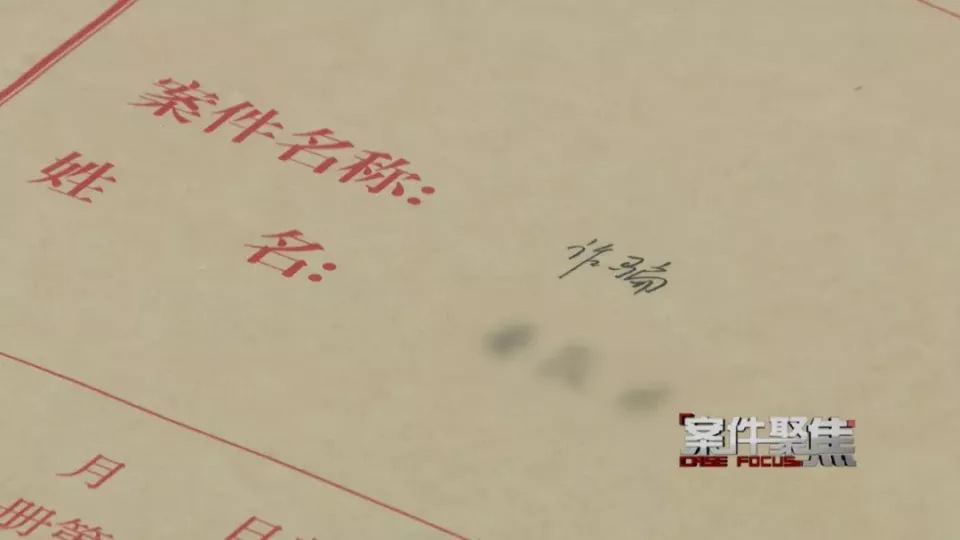 案件名称:
诈骗
姓名:
月
日
册第
案件聚焦
CASE FOCUS